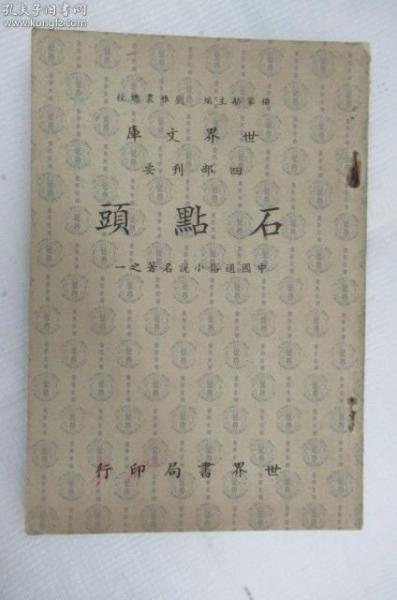 孔夫子旧书网
www.kongfz.com
楊家駱主編 劉雅農總校
世界文庫
四部刊要
石點頭
中國通俗小說名著之一
世界書局印行